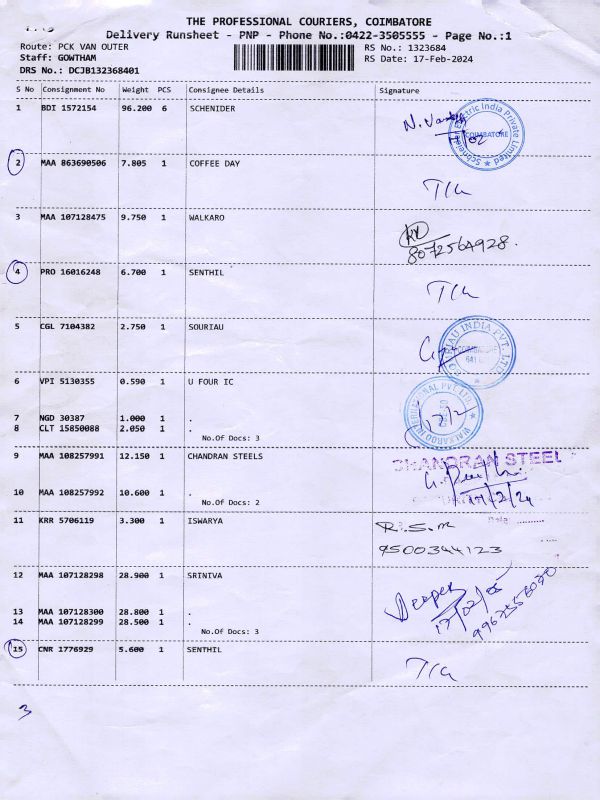 THE PROFESSIONAL COURIERS, COIMBATORE
Delivery Runsheet - PNP - Phone No.:0422-3505555 - Page No.:1
Route: PCK VAN OUTER RS No.: 1323684
Staff: GOWTHAM RS Date: 17-Feb-2024
DRS No.: DCJB132368401
S No Consignment No Weight PCS Consignee Details Signature
1 BDI 1572154 96.200 6 SCHENIDER
Schneider Electric India Private Limited
COIMBATORE
2 MAA 863690506 7.805 1 COFFEE DAY
3 MAA 107128475 9.750 1 WALKARO
8072564928.
4 PRO 16016248 6.700 1 SENTHIL
5 CGL 7104382 2.750 1 SOURIAU
INDIA PVT. LTD.
COIMBATORE
6 VPI 5130355 0.590 1 U FOUR IC
WALKAROO INTERNATIONAL PVT LTD.
7 NGD 30387 1.000 1 .
8 CLT 15850088 2.050 1 .
No.Of Docs: 3
9 MAA 108257991 12.150 1 CHANDRAN STEELS
CHANDRAN STEEL
10 MAA 108257992 10.600 1 .
17/2/24
No.Of Docs: 2
11 KRR 5706119 3.300 1 ISWARYA
R.S.M
9500344123
12 MAA 107128298 28.900 1 SRINIVA
13 MAA 107128300 28.800 1 .
14 MAA 107128299 28.500 1 .
No.Of Docs: 3
15 CNR 1776929 5.600 1 SENTHIL
3